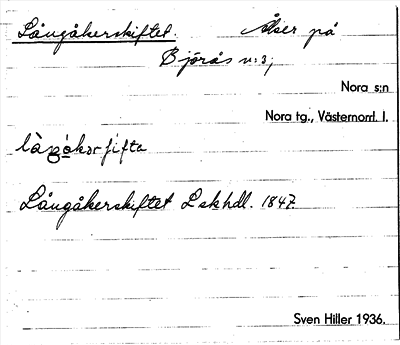 Långåkerskiftet. Åker på
Björås n:3;
Nora s:n
Nora tg., Västernorrl. l.
Långåkerskiftet Lskhdl. 1847.
Sven Hiller 1936.